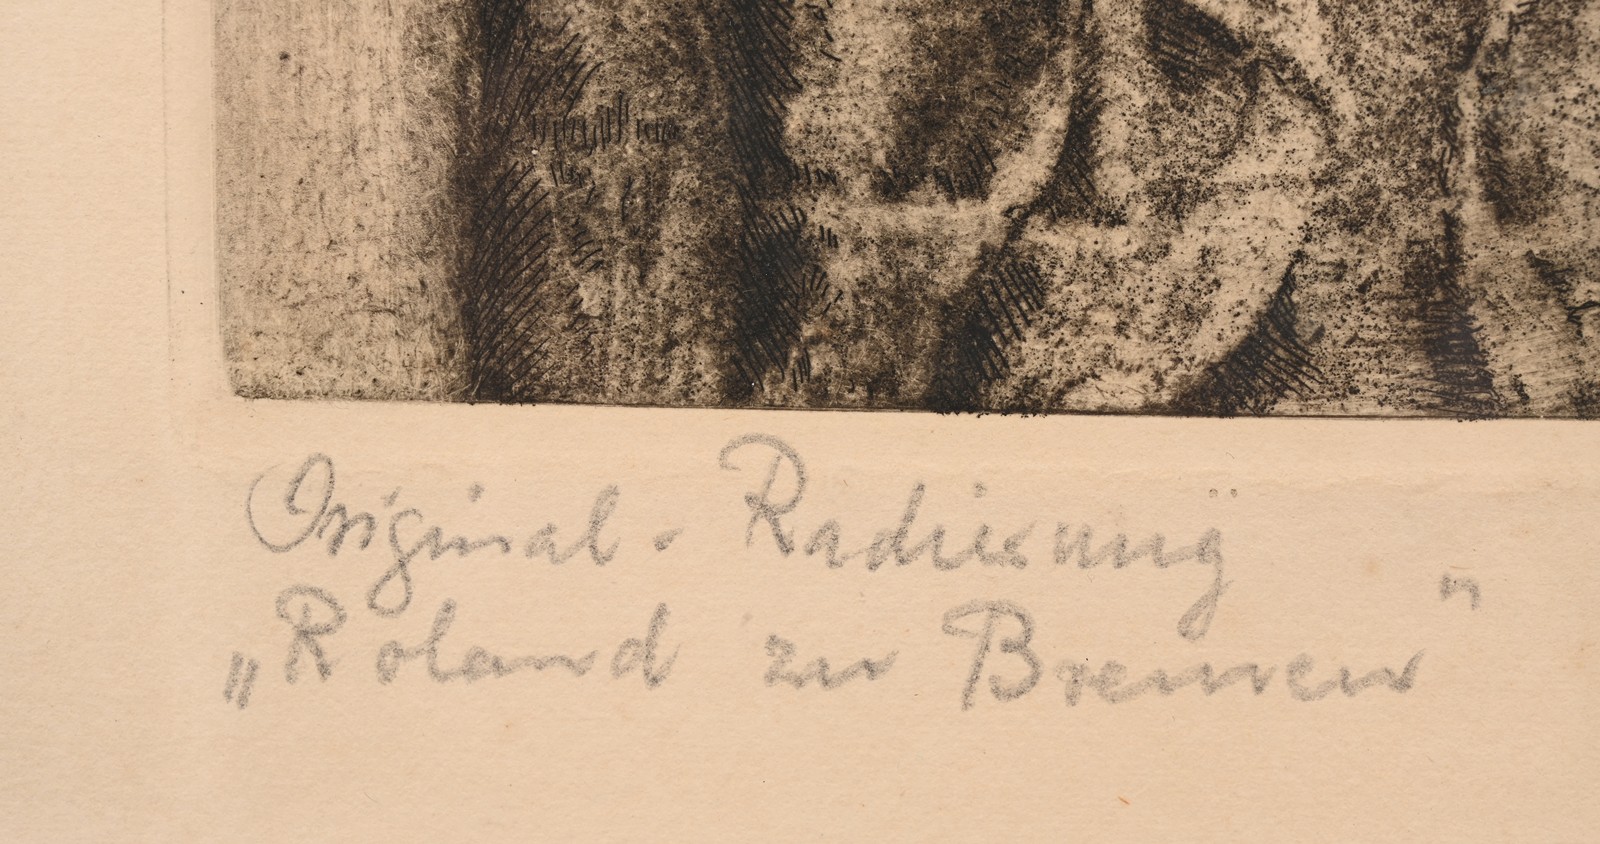 Original-Radierung
„Roland zu Bremen"